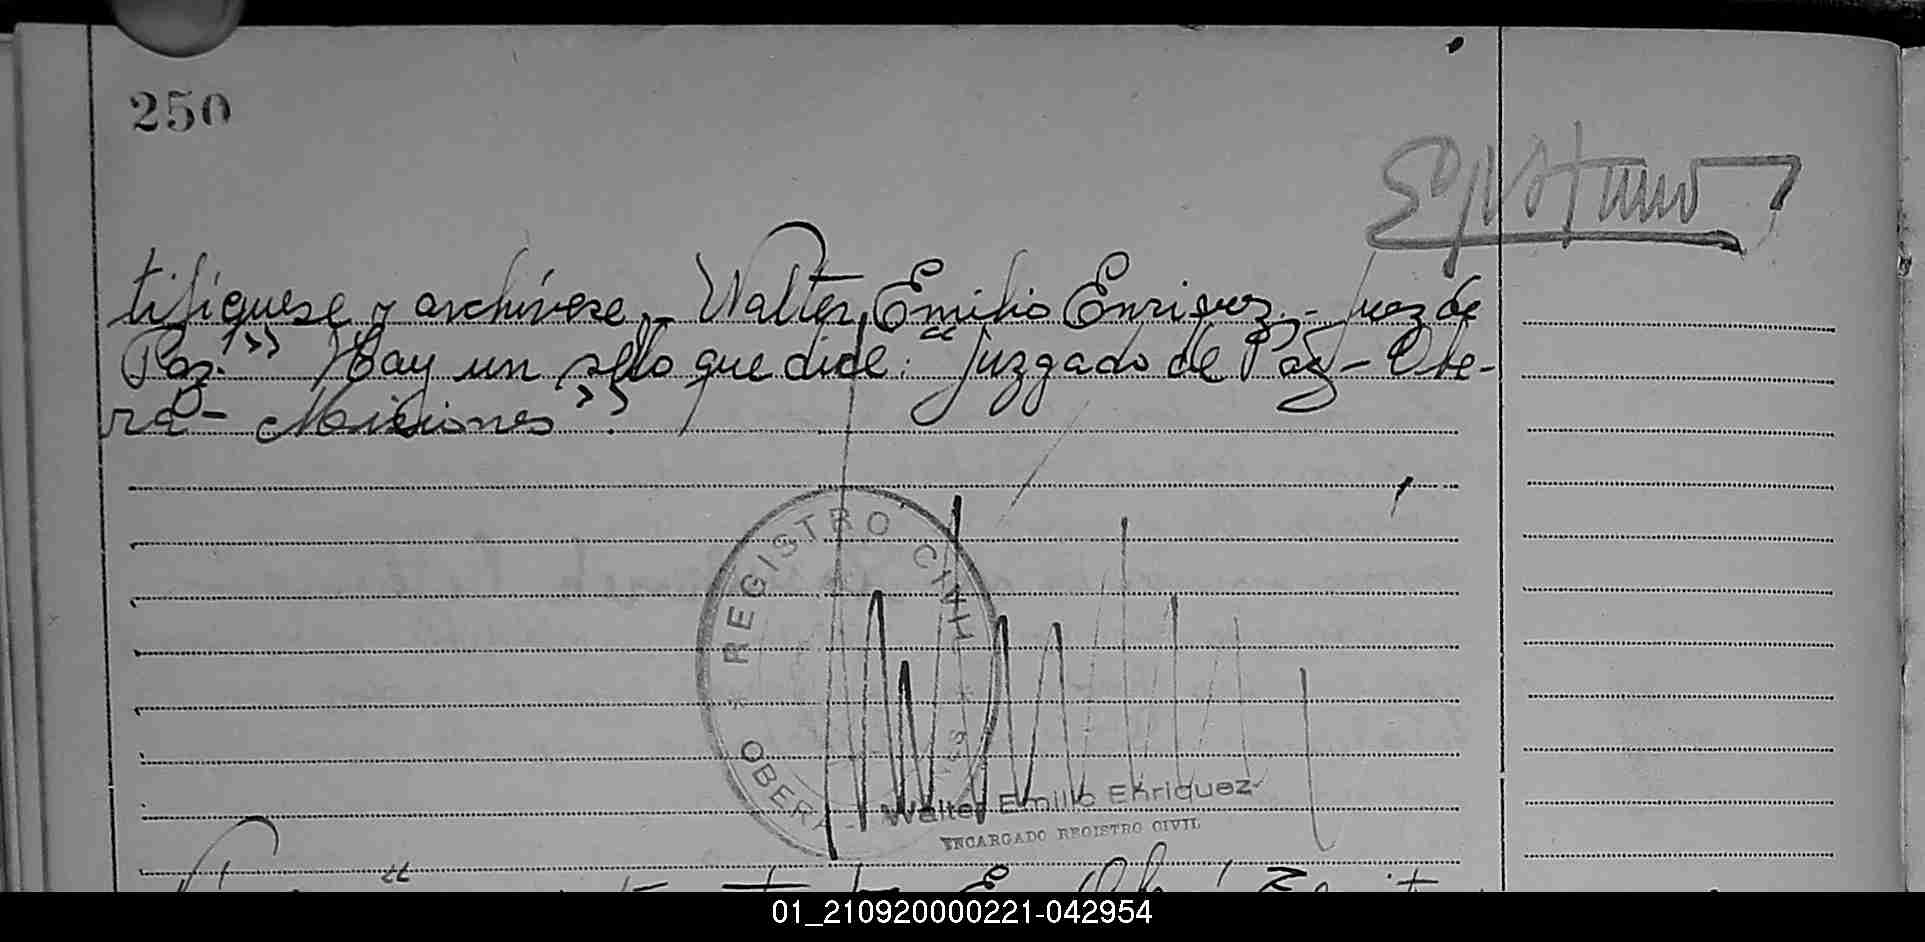 250
tifiquese y archívese.- Walter Emilio Enriquez.- Juez de
Paz." Hay un sello que dice: "Juzgado de Paz - Obe-
rá - Misiones".
REGISTRO CIVIL
OBERA -
Walter Emilio Enriquez
ENCARGADO REGISTRO CIVIL
01_210920000221-042954